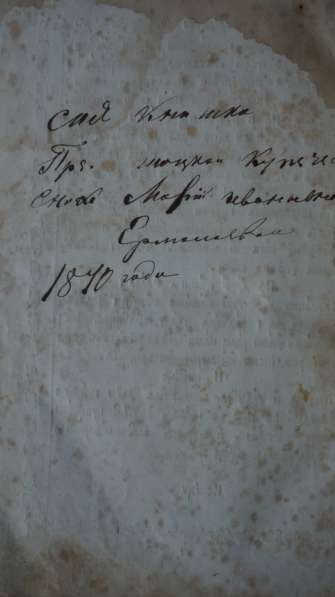 сия книшка
Пре. моцкой Купече
снохе Марiи ивановны
Ермолаевои
1870 года